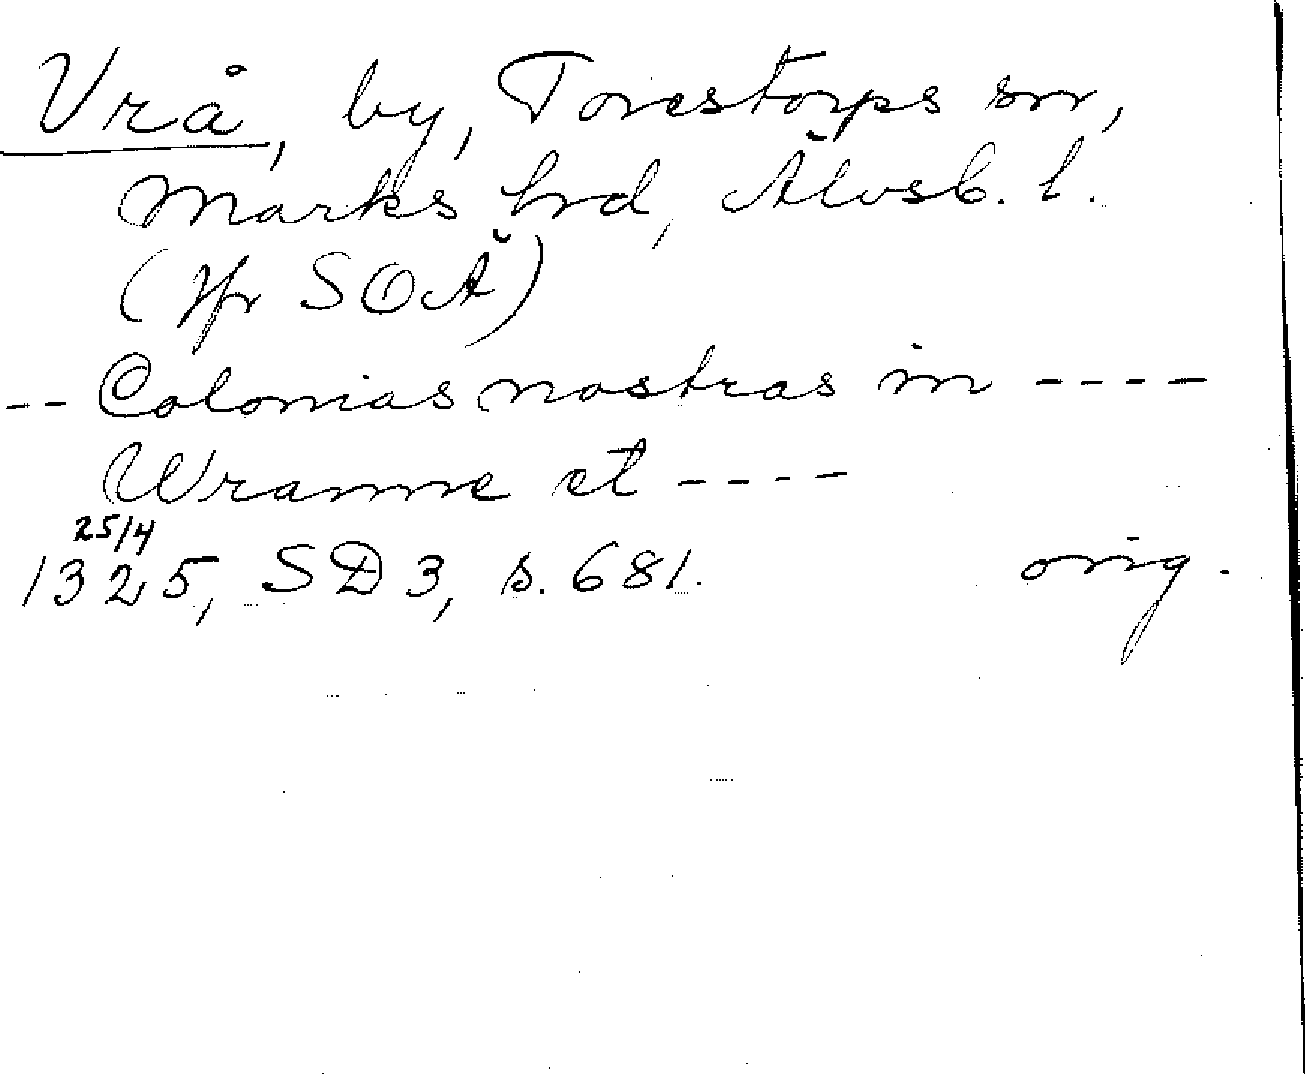 Vrå, by, Torestorps sn,
Marks hrd, Älvsb. l.
(Jfr SOÄ)
-- Colonias nostras in ----
Wramme et ----
25/4
1325, SD 3, s. 681. orig.